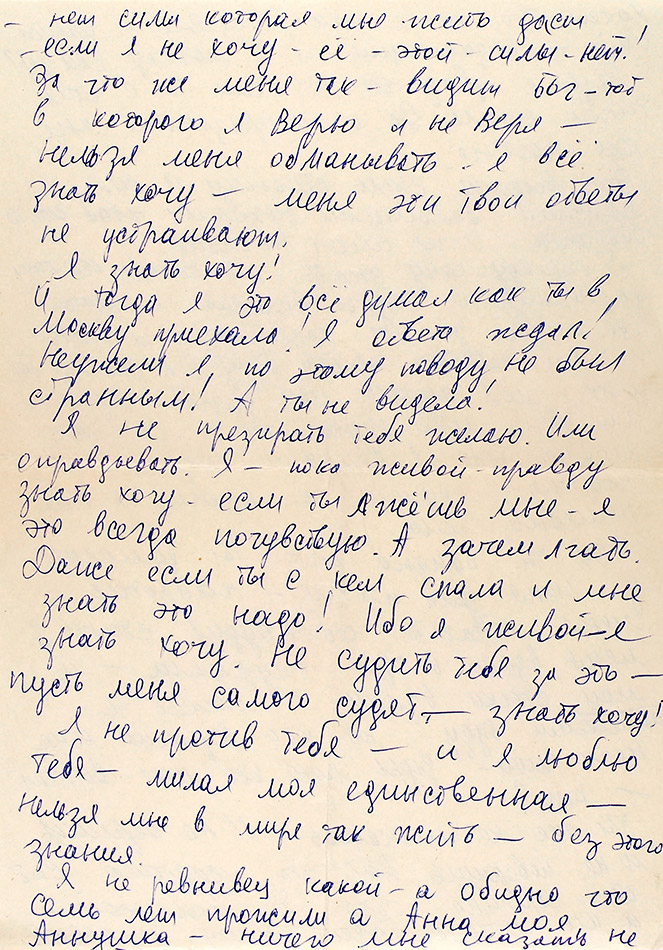 – нет силы которая мне жить даст
– если я не хочу – её – этой – силы – нет!
За что же меня так – видит бог – тот
в которого я Верю и не Веря –
нельзя меня обманывать – я всё
знать хочу – меня эти твои ответы
не устраивают.
Я знать хочу!
И тогда я это всё думал как ты в
Москву приехала! Я ответа ждал!
Неужели я, по этому поводу не был
странным! А ты не видела!
Я не презирать тебя желаю. Или
оправдывать. Я – пока живой – правду
знать хочу – если ты лжёшь мне – я
это всегда почувствую. А зачем лгать.
Даже если ты с кем спала и мне
знать это надо! Ибо я живой – я
знать хочу. Не судить тебя за это –
пусть меня самого судят, – знать хочу!
Я не против тебя – и я люблю
тебя – милая моя единственная –
нельзя мне в мире так жить – без этого
знания.
Я не ревнивец какой – а обидно что
семь лет прожили а Анна моя
Аннушка – ничего мне сказать не